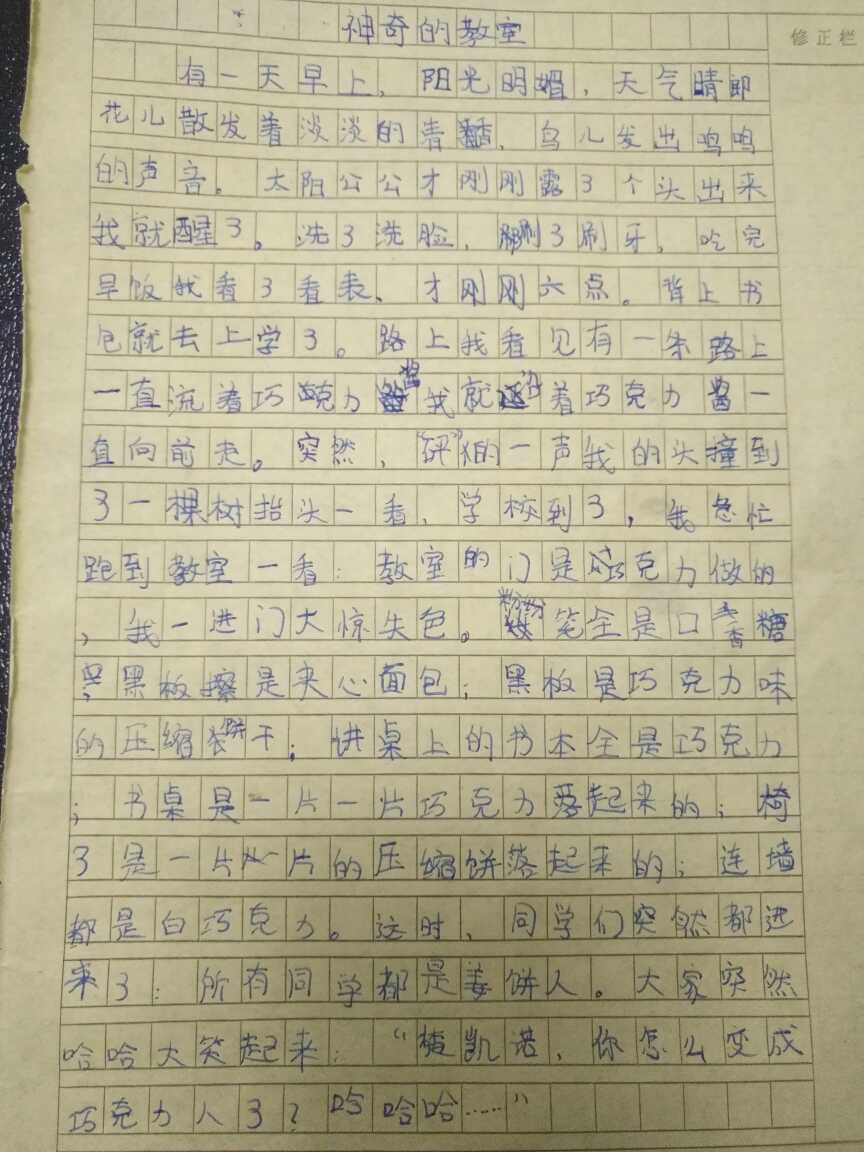 修正栏
神奇的教室
有一天早上，阳光明媚，天气晴郎
花儿散发着淡淡的清香，鸟儿发出鸣鸣
的声音。太阳公公才刚刚露了个头出来
我就醒了。洗了洗脸，刷了刷牙，吃完
早饭我看了看表、才刚刚六点。背上书
包就去上学了。路上我看见有一条路上
一直流着巧克力酱我就沿着巧克力酱一
直向前走。突然，“砰”的一声我的头撞到
了一棵树抬头一看、学校到了，我急忙
跑到教室一看：教室的门是巧克力做的
，我一进门大惊失色。粉笔全是口香糖
；黑板擦是夹心面包；黑板是巧克力味
的压缩饼干；讲桌上的书本全是巧克力
；书桌是一片一片巧克力落起来的；椅
子是一片一片的压缩饼落起来的；连墙
都是白巧克力。这时、同学们突然都进
来了：所有同学都是姜饼人。大家突然
哈哈大笑起来：“凯诺、你怎么变成
巧克力人了？哈哈哈……”